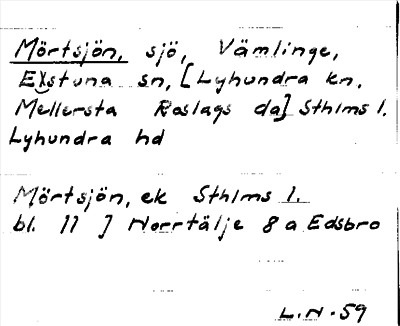 Mörtsjön, sjö, Vämlinge,
Estuna sn, [Lyhundra kn,
Mellersta Roslags da] Sthlms l.
Lyhundra hd
Mörtsjön, ek Sthlms l.
bl. 11 ] Norrtälje 8 a Edsbro
L.N-59